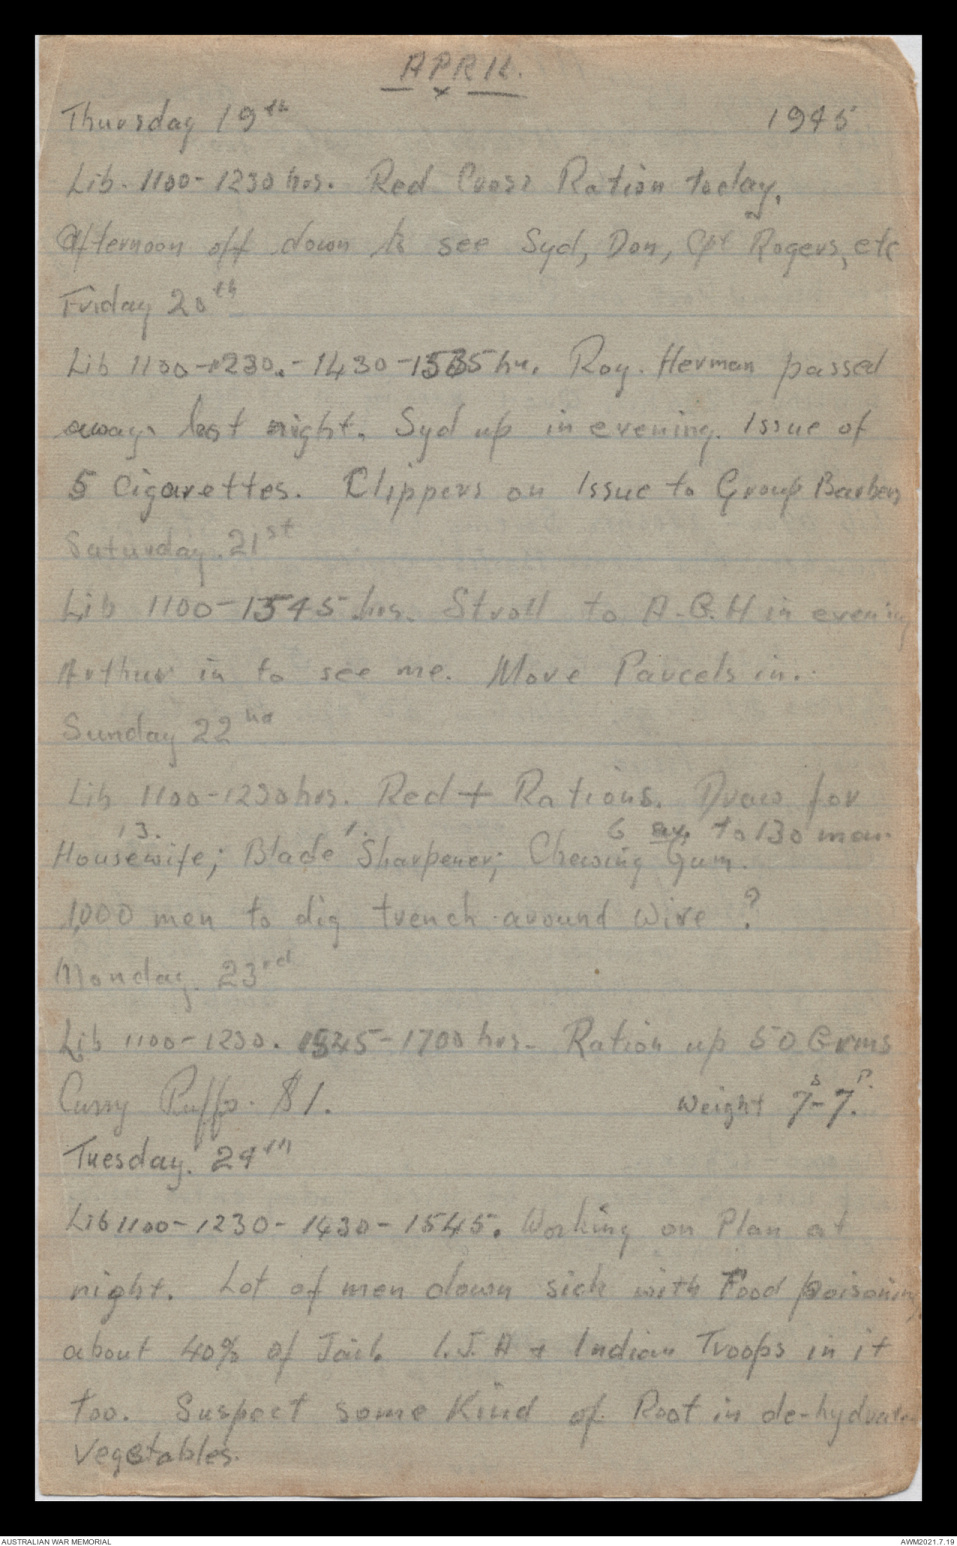 APRIL.
Thursday 19th 1945
Lib. 1100-1230 hrs. Red Cross Ration today.
Afternoon off down to see Syd, Don, Cpt Rogers, etc
Friday 20th
Lib 1100-1230.-1430-1535 hr. Roy. Herman passed
away last night. Syd up in evening. Issue of
5 Cigarettes. Clippers on Issue to Group Barbers
Saturday. 21st
Lib 1100-1545 hrs. Stroll to A.G.H in evening
Arthur in to see me. More Parcels in.
Sunday 22nd
Lib 1100-1230 hrs. Red + Rations. Draw for
13. 1. 6 to 130 men
Housewife; Blade Sharpener; Chewing Gum.
1,000 men to dig trench around wire ?
Monday. 23rd
Lib 1100-1230. 1545-1700 hrs. Ration up 50 Grms
Curry Puffs. $1. Weight 7S-7P.
Tuesday. 24th
Lib 1100-1230-1430-1545. Working on Plan at
night. Lot of men down sick with Food poisoning
about 40% of Jail. I.J.A + Indian Troops in it
too. Suspect some Kind of Root in de-hydrated
Vegetables.
AUSTRALIAN WAR MEMORIAL AWM2021.7.19